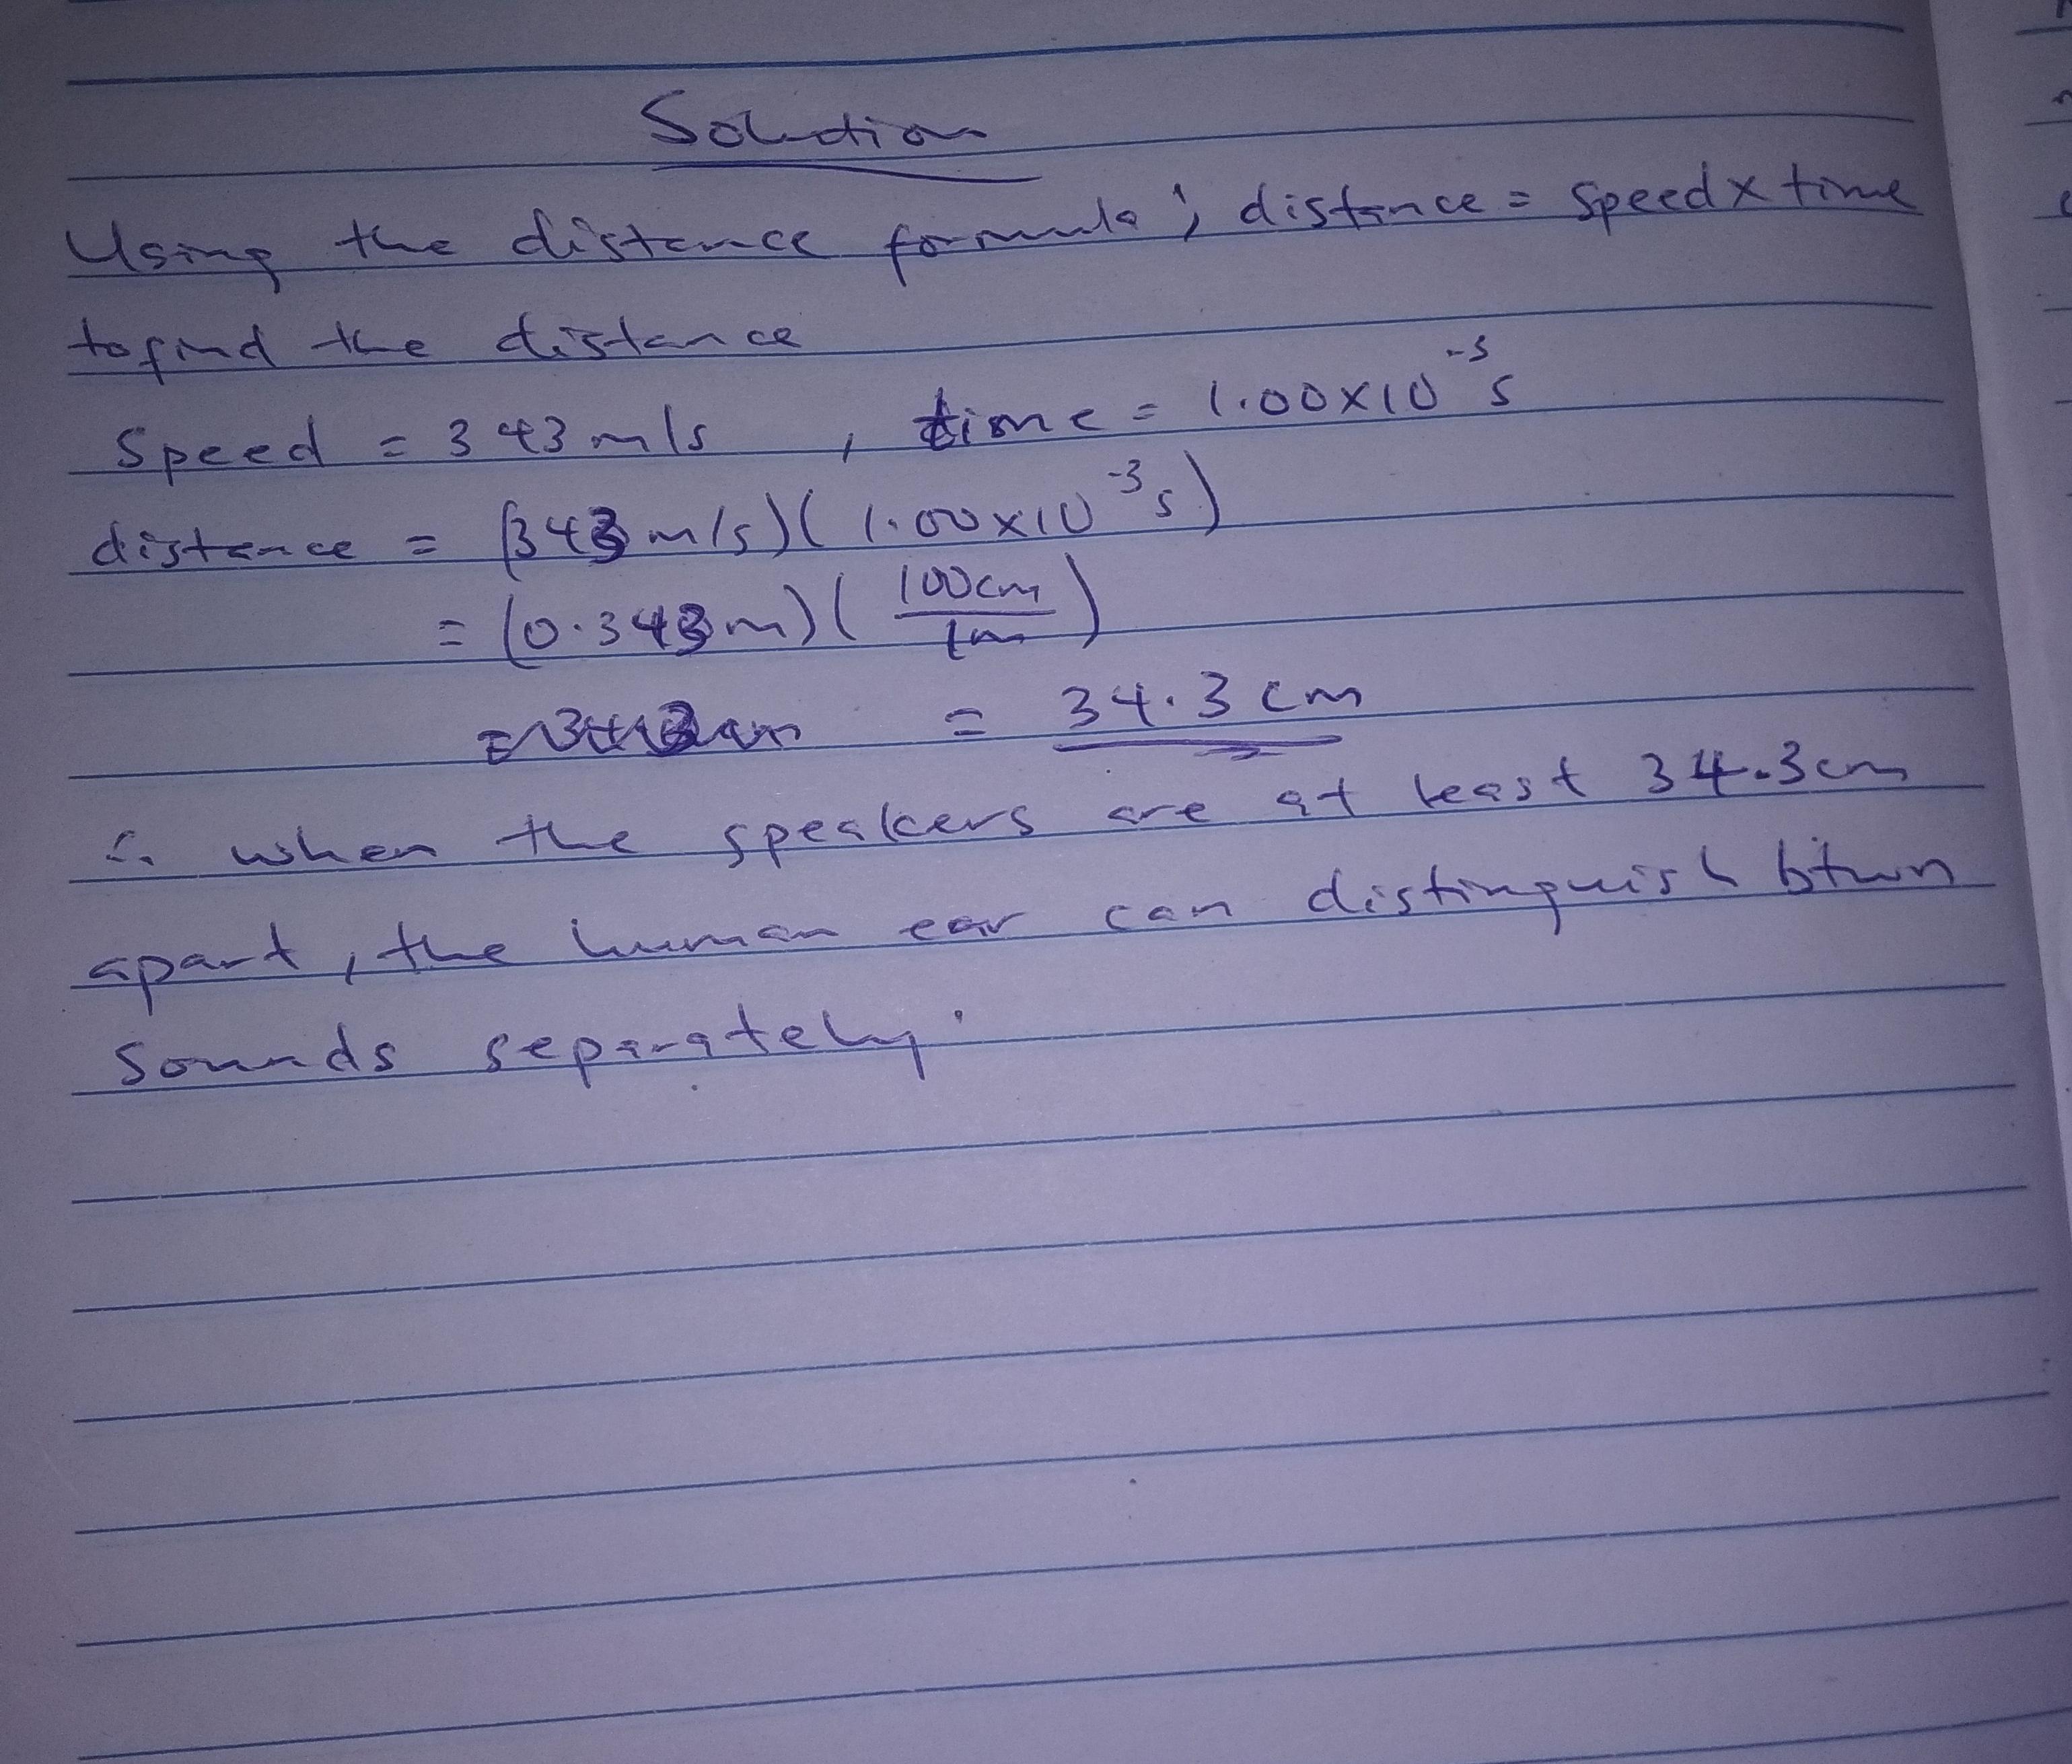 Solution
Using the distance formula; distance = speed x time
to find the distance
Speed = 343 m/s , time = 1.00x10⁻³ s
distance = (343 m/s)(1.00x10⁻³ s)
= (0.343m)(100cm/1m)
= 34.3 cm
∴ when the speakers are at least 34.3cm
apart, the human ear can distinguish btwn
sounds separately.